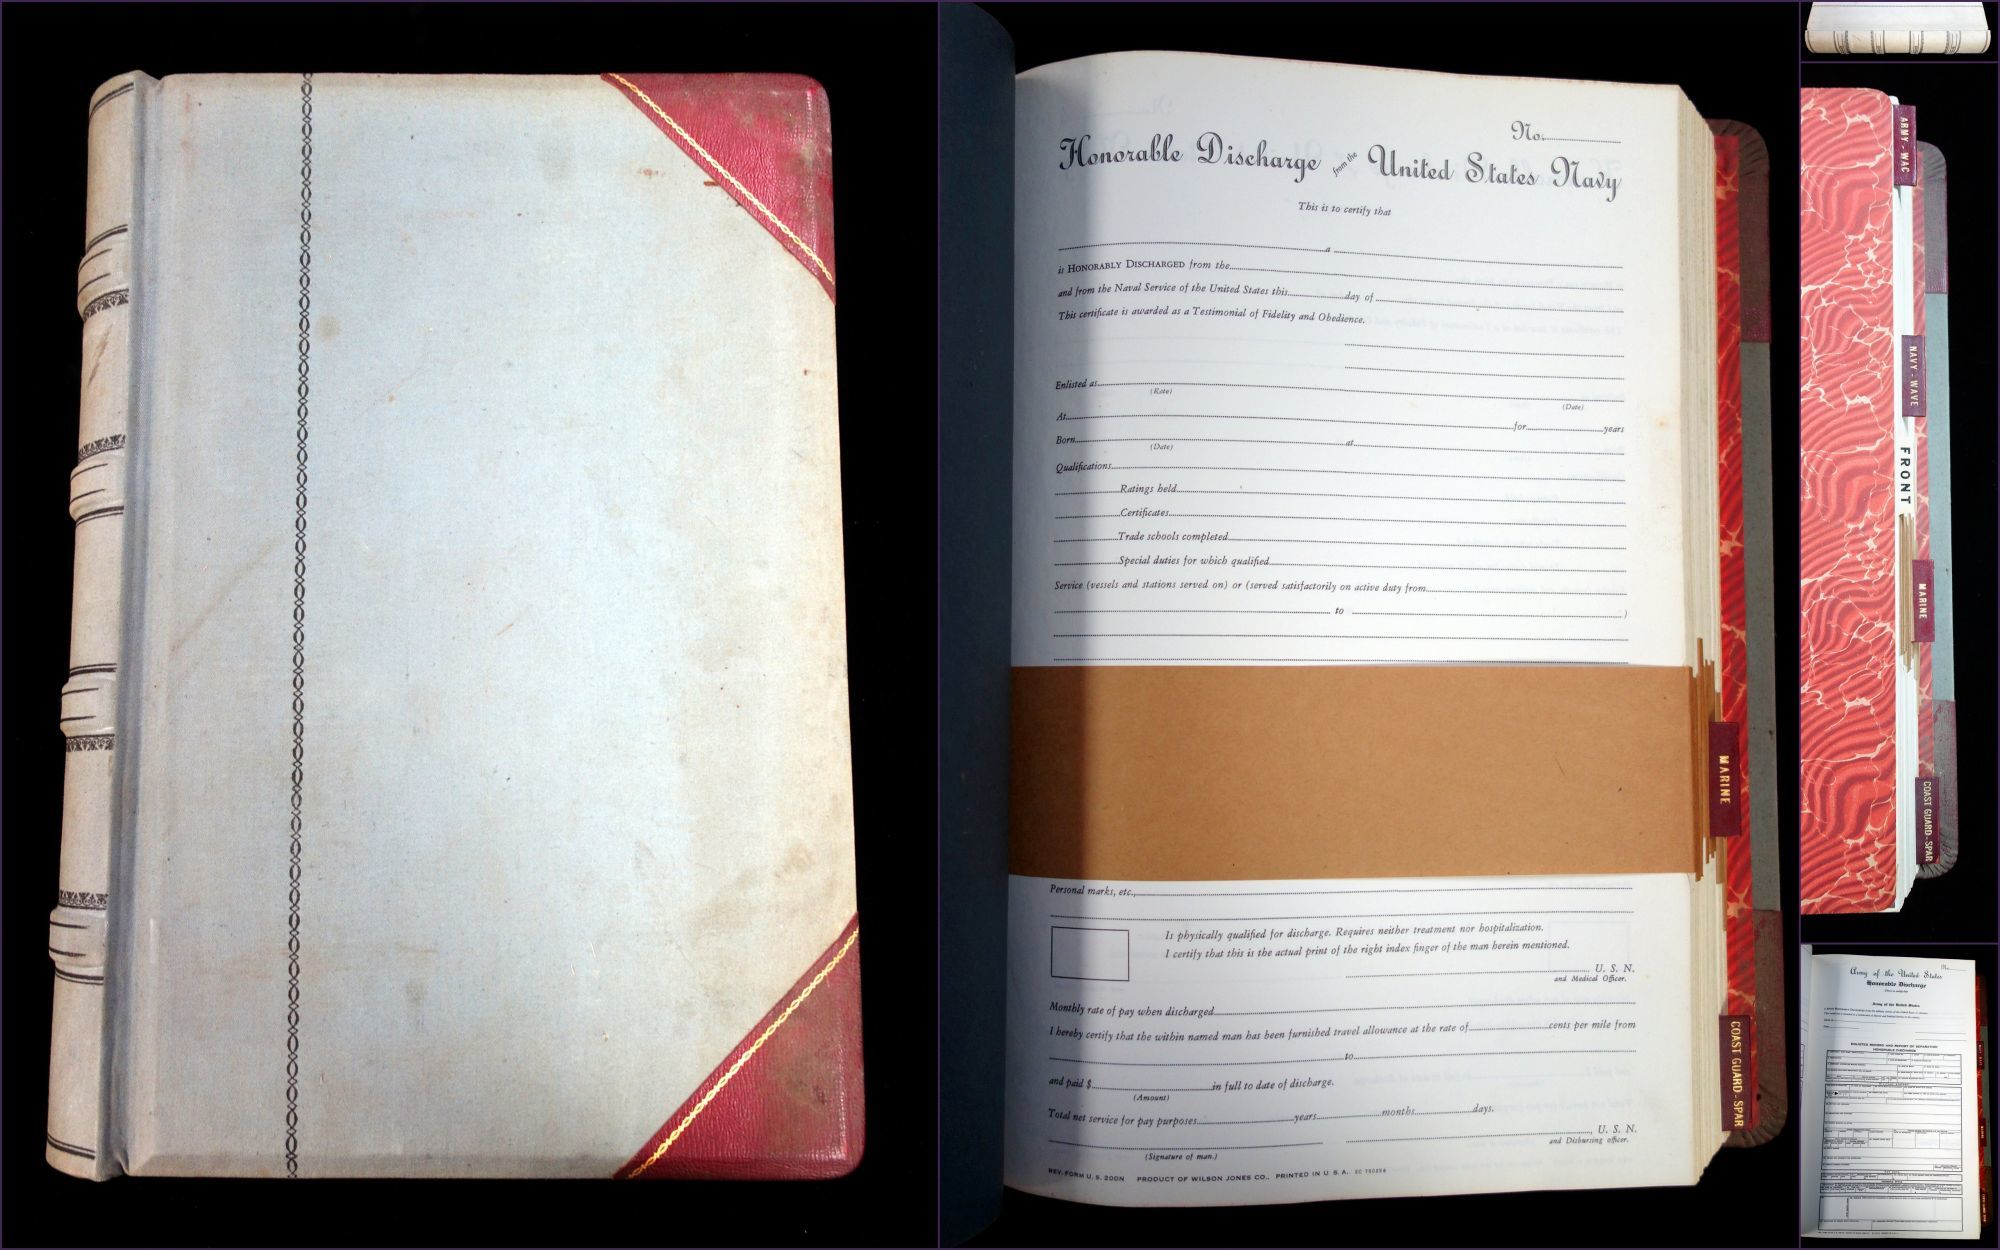 No.
Honorable Discharge from the United States Navy
This is to certify that
a
is HONORABLY DISCHARGED from the
and from the Naval Service of the United States this day of
This certificate is awarded as a Testimonial of Fidelity and Obedience.
Enlisted as
(Rate) (Date)
At for years
Born at
(Date)
Qualifications
Ratings held
Certificates
Trade schools completed
Special duties for which qualified
Service (vessels and stations served on) or (served satisfactorily on active duty from
to )
Personal marks, etc.,
Is physically qualified for discharge. Requires neither treatment nor hospitalization.
I certify that this is the actual print of the right index finger of the man herein mentioned.
U. S. N.
and Medical Officer.
Monthly rate of pay when discharged
I hereby certify that the within named man has been furnished travel allowance at the rate of cents per mile from
to
and paid $ in full to date of discharge.
(Amount)
Total net service for pay purposes years months days.
, U. S. N.
and Disbursing officer.
(Signature of man.)
REV. FORM U. S. 200N PRODUCT OF WILSON JONES CO., PRINTED IN U. S. A.
MARINE
COAST GUARD - SPAR
ARMY - WAC
NAVY - WAVE
FRONT
MARINE
COAST GUARD - SPAR
No.
Army of the United States
Honorable Discharge
Army of the United States
ENLISTED RECORD AND REPORT OF SEPARATION
HONORABLE DISCHARGE